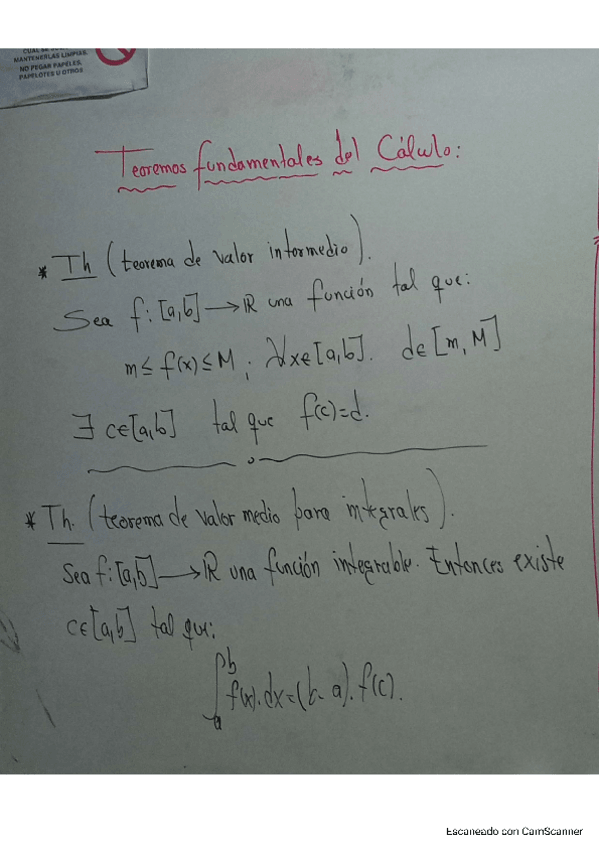 CUAL
MANTENERLAS LIMPIAS.
NO PEGAR PAPELES,
PAPELOTES U OTROS
Teoremos fundamentales del Cálculo:
* Th (teorema de valor intermedio).
Sea f: [a,b] → ℝ una función tal que:
m ≤ f(x) ≤ M ; ∀x∈[a,b]. d∈[m, M]
∃ c∈[a,b] tal que f(c)=d.
* Th. (teorema de valor medio para integrales).
Sea f: [a,b] → ℝ una función integrable. Entonces existe
c∈[a,b] tal que:
∫_a^b f(x).dx=(b-a).f(c).
Escaneado con CamScanner